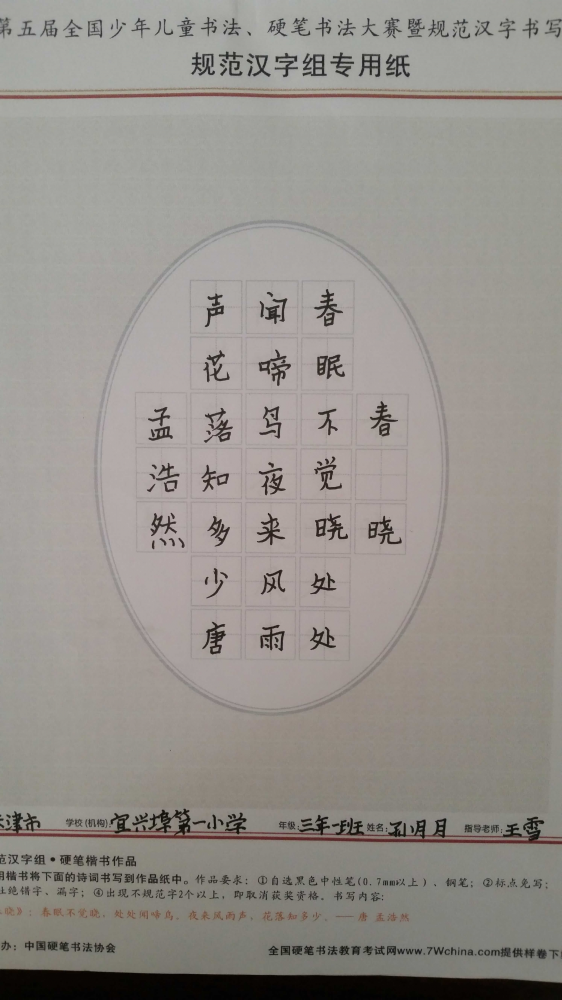 第五届全国少年儿童书法、硬笔书法大赛暨规范汉字书写
规范汉字组专用纸
春晓
春眠不觉晓处处
闻啼鸟夜来风雨
声花落知多少唐
孟浩然
天津市 学校(机构):宜兴埠第一小学 年级:三年一班 姓名:孙月月 指导老师:王雪
范汉字组•硬笔楷书作品
用楷书将下面的诗词书写到作品纸中。作品要求：①自选黑色中性笔(0.7mm以上）、钢笔；②标点免写；
杜绝错字、漏字；④出现不规范字2个以上，即取消获奖资格。书写内容：
春晓》：春眠不觉晓，处处闻啼鸟。夜来风雨声，花落知多少。——唐 孟浩然
办：中国硬笔书法协会 全国硬笔书法教育考试网www.7Wchina.com提供样卷下